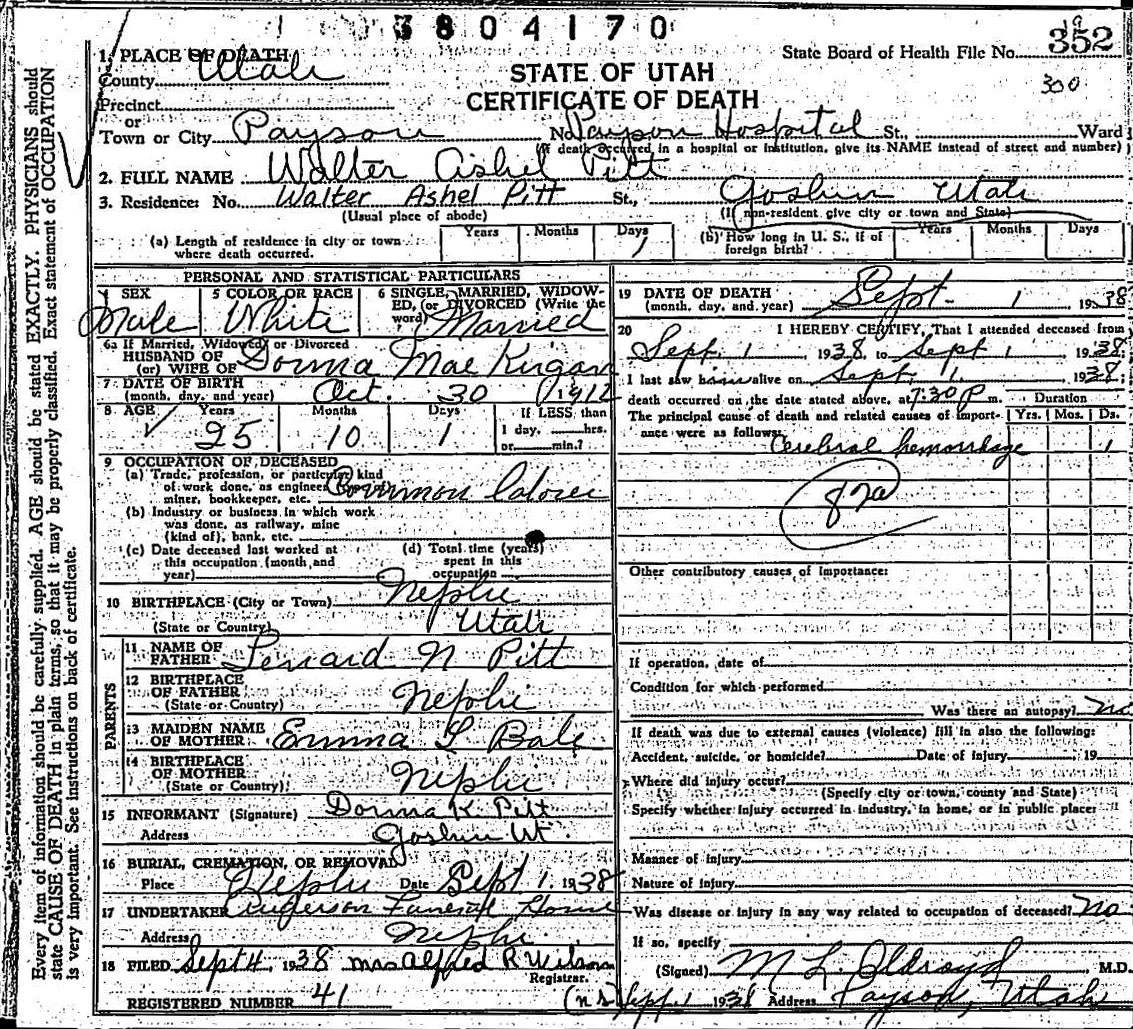 3804170
State Board of Health File No. 352
19
300
STATE OF UTAH
CERTIFICATE OF DEATH
1. PLACE OF DEATH
County Utah
Precinct
or
Town or City Payson No. Payson Hospital St., Ward
(If death occurred in a hospital or institution, give its NAME instead of street and number)
2. FULL NAME Walter Ashel Pitt
3. Residence: No. Walter Ashel Pitt St., Goshen Utah
(Usual place of abode) (If non-resident give city or town and State)
(a) Length of residence in city or town where death occurred. Years Months Days 1
(b) How long in U. S., if of foreign birth? Years Months Days
PERSONAL AND STATISTICAL PARTICULARS
4 SEX 5 COLOR OR RACE 6 SINGLE, MARRIED, WIDOW-
ED, (or DIVORCED (Write the
word)
Male White Married
6a If Married, Widowed or Divorced
HUSBAND OF
(or) WIFE OF Donna Mae Kirgan
7 DATE OF BIRTH
(month, day, and year) Oct. 30 1912
8 AGE Years Months Days If LESS than
25 10 1 1 day, hrs.
or min.?
9 OCCUPATION OF DECEASED
(a) Trade, profession, or particular kind
of work done, as engineer,
miner, bookkeeper, etc. Common Laborer
(b) Industry or business in which work
was done, as railway, mine
(kind of), bank, etc.
(c) Date deceased last worked at
this occupation (month and
year)
(d) Total time (years)
spent in this
occupation
10 BIRTHPLACE (City or Town) Nephi
(State or Country) Utah
PARENTS
11 NAME OF
FATHER N Pitt
12 BIRTHPLACE
OF FATHER
(State or Country) Nephi
13 MAIDEN NAME
OF MOTHER Emma Bale
14 BIRTHPLACE
OF MOTHER
(State or Country) Nephi
15 INFORMANT (Signature) Donna K. Pitt
Address Goshen Ut.
16 BURIAL, CREMATION, OR REMOVAL
Place Nephi Date Sept 1 1938
17 UNDERTAKER Anderson Funeral Home
Address Nephi
18 FILED Sept 4, 1938 Mrs Alfred R Wilson
Registrar.
REGISTERED NUMBER 41
19 DATE OF DEATH
(month, day, and year) Sept. 1 1938
20 I HEREBY CERTIFY, That I attended deceased from
Sept. 1 1938 to Sept 1 1938
I last saw him alive on Sept 1. 1938
death occurred on the date stated above, at 7:30 P m. Duration
The principal cause of death and related causes of import-
ance were as follows: Yrs. Mos. Ds.
Cerebral hemorrhage 1
82a
Other contributory causes of importance:
If operation, date of
Condition for which performed
Was there an autopsy? No
If death was due to external causes (violence) fill in also the following:
Accident, suicide, or homicide? Date of injury , 19
Where did injury occur?
(Specify city or town, county and State)
Specify whether injury occurred in industry, in home, or in public place:
Manner of injury
Nature of injury
Was disease or injury in any way related to occupation of deceased? No
If so, specify
(Signed) M L. Oldroyd , M.D.
(ns) Sept. 1 1938 Address Payson, Utah
Every item of information should be carefully supplied. AGE should be stated EXACTLY. PHYSICIANS should
state CAUSE OF DEATH in plain terms, so that it may be properly classified. Exact statement of OCCUPATION
is very important. See instructions on back of certificate.